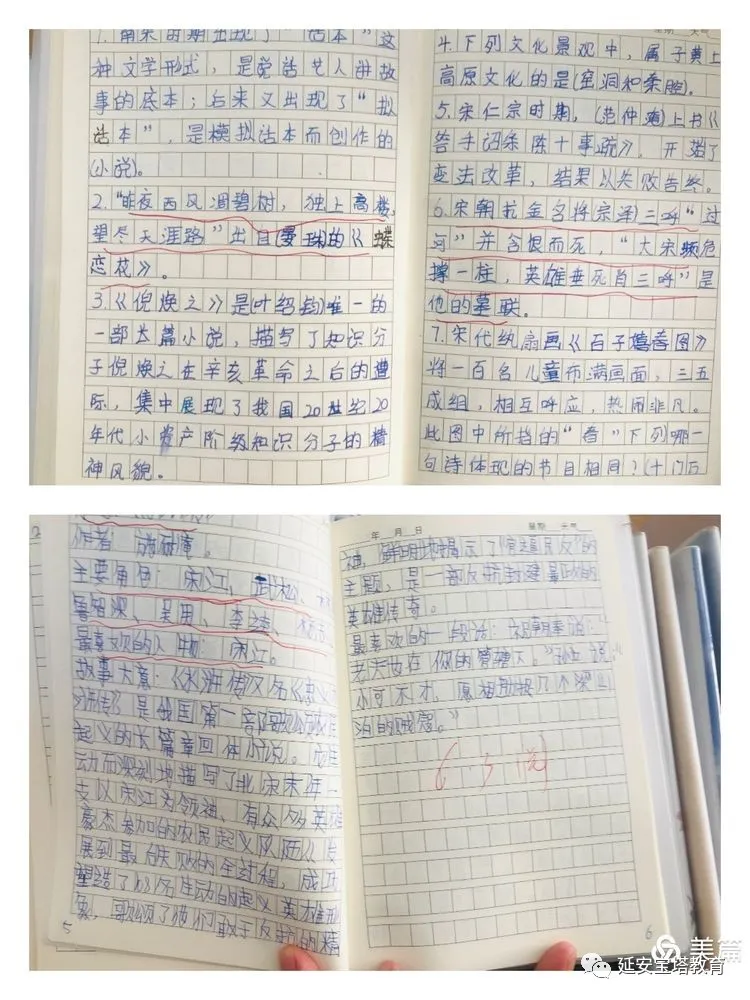 1.南宋时期出现了“话本”这
种文学形式，是说话艺人讲故
事的底本；后来又出现了“拟
话本”，是模拟话本而创作的
(小说)。
2.“昨夜西风凋碧树，独上高楼，
望尽天涯路”出自(晏殊)的《蝶
恋花》。
3.《倪焕之》是(叶绍钧)唯一的
一部长篇小说，描写了知识分
子倪焕之在辛亥革命之后的遭
际，集中展现了我国20世纪20
年代小资产阶级知识分子的精
神风貌。
4.下列文化景观中，属于黄土
高原文化的是(窑洞和秦腔)。
5.宋仁宗时期，(范仲淹)上书《
答手诏条陈十事疏》，开始了
变法改革，结果以失败告终。
6.宋朝抗金名将(宗泽)三呼“过
河”并含恨而死，“大宋频危
撑一柱，英雄垂死首三呼”是
他的墓联。
7.宋代纨扇画《百子嬉春图》
将一百名儿童布满画面，三五
成组，相互呼应，热闹非凡。
此图中所指的“春”下列哪一
句诗体现的节目相同？(千门万
作者：施耐庵。
主要角色：宋江，武松、
鲁智深、吴用、李逵、
最喜欢的人物：宋江。
故事大意：《水浒传》又名《忠义
水浒传》是我国第一部歌颂农民
起义的长篇章回体小说。
动而深刻地描写了北宋末年一
支以宋江为领袖、有众多英雄
豪杰参加的农民起义队伍从发
展到最后失败的全过程，成功
塑造了108名生动的起义英雄形
象，歌颂了他们敢于反抗的精
年 月 日 星期 天气
神，鲜明地揭示了“官逼民反”的
主题，是一部反抗封建暴政的
英雄传奇。
最喜欢的一段话：胡朝奉说：“
老夫也在你的管辖下。”孙立说：“
小可不才，愿相助捉几个梁山
泊的贼寇。”
5
6
美篇
延安宝塔教育